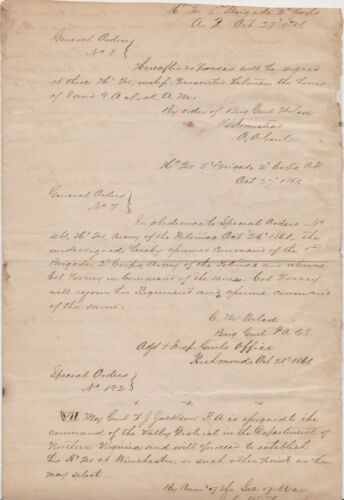 Hd Qrs 5" Brigade 2" Corps
A P. Oct 27th 1861
General Orders
No 8
Hereafter no passes will be signed
at these Hd Qrs unless presented between the hours
of 8 and 9 A clock A M.
By order of Brig Genl Wilcox
A A Genl
Hd Qrs 5" Brigade 2" Corps A P
Oct 27th 1861
General Orders
No 7
In obedience to Special Orders No
Hd Qrs Army of the Potomac Oct 24th 1861, the
undersigned hereby assumes command of the 5th
Brigade 2" Corps Army of the Potomac and relieves
Col Forney in command of the same. Col Forney
will rejoin his Regiment and assume command
of the same.
C. M. Wilcox
Brig Genl P.A.C.S.
Adjt & Insp Genls Office
Richmond Oct 21st 1861
Special Orders
No 192
x x x
VII May Genl T J Jackson P.A is assigned to the
command of the Valley District in the Department of
Northern Virginia and will proceed to establish
his Hd Qrs at Winchester or such other point as he
may select.
By Comd of the Sec of War